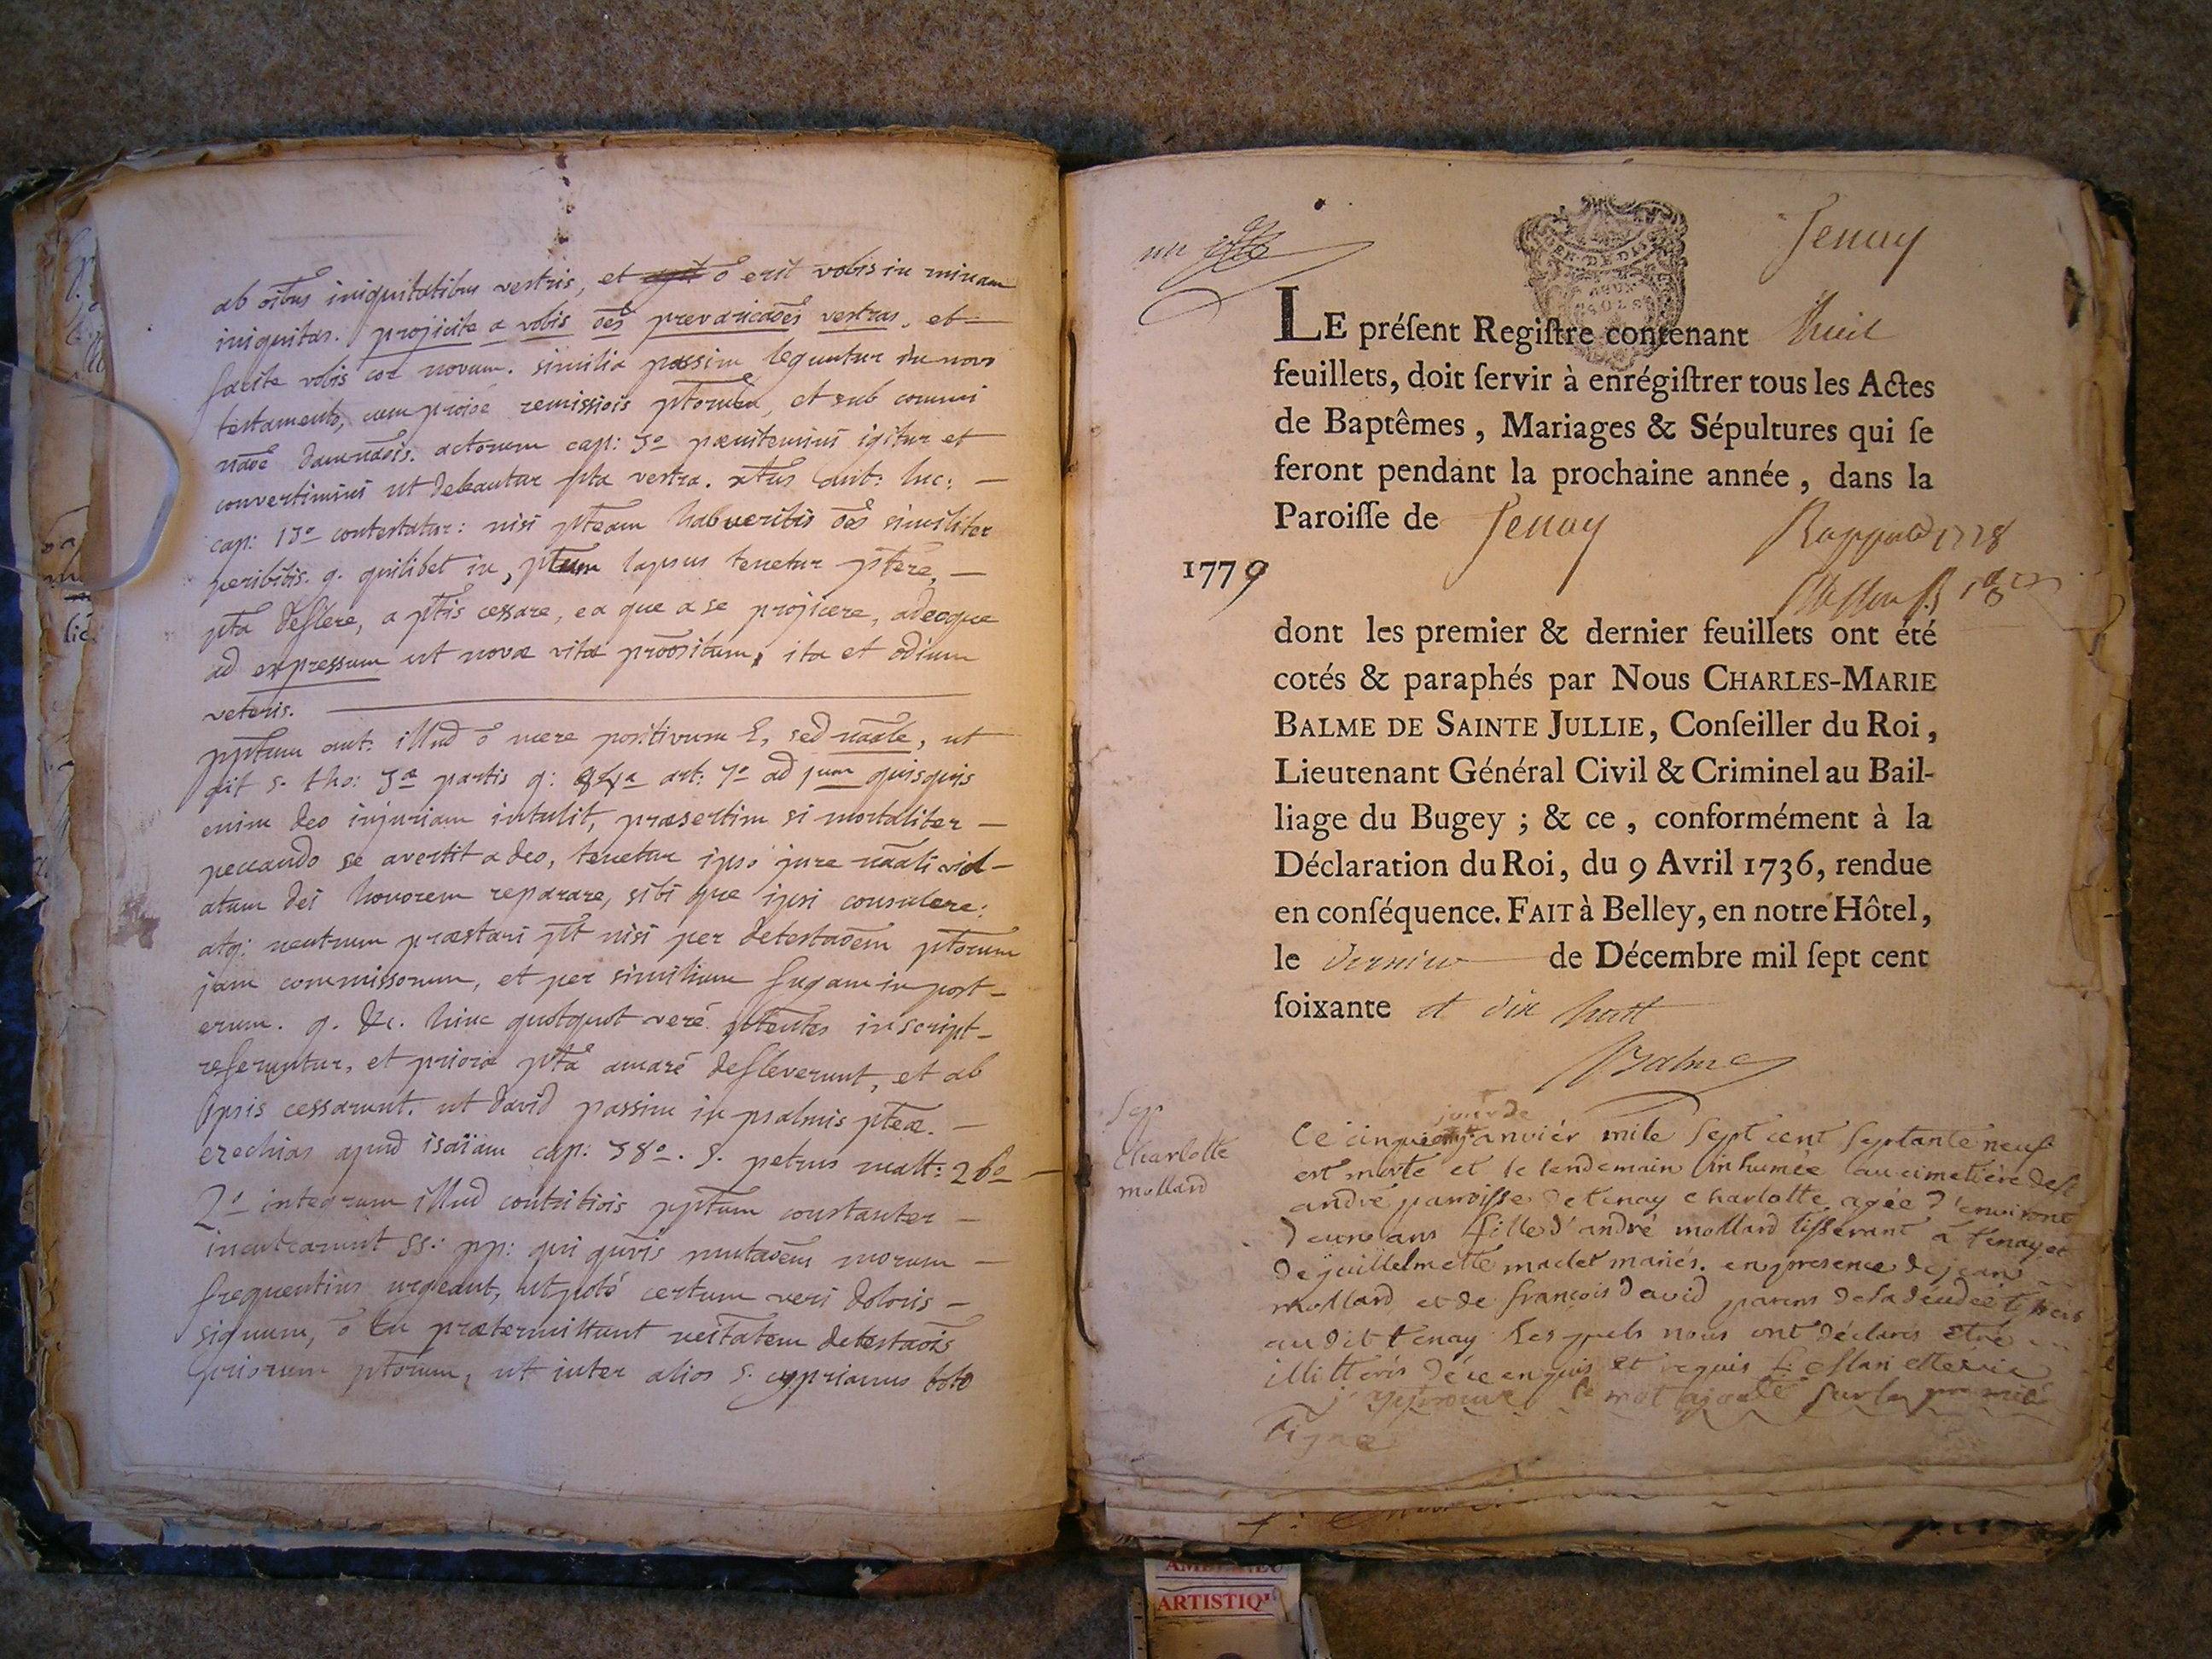 ab oībus iniquitatibus vestris, et ō erit vobis in ruinam
iniquitas. projicite a vobis oēs prevaricaōēs vestras, et
facite vobis cor novum. similia passim leguntur in novo
testamento, cum remissiois ptorum, et sub commi
naōē damnaōis. actorum cap: 3º pœnitemini igitur et
convertimini ut deleantur pta vestra. xtus aut: luc:
cap: 13º contestatur: nisi pteam habueritis oēs similiter
peribitis. g. quilibet in ptum lapsus tenetur ptere,
pta deflere, a ptis cessare, ea que a se projicere, adeoque
ad expressum ut novæ vitæ propositum, ita et odium
veteris.
pptum aut: illud ō mere positivum ē, sed naāle, ut
ait s. tho: 3ª partis q: 84ª art: 7º ad 1um quisquis
enim deo injuriam intulit, præsertim si mortaliter
peccando se avertit a deo, tenetur ipso jure naāli viol-
atum dei honorem reparare, sibi que ipsi consulere:
atq: neutrum præstari pōt nisi per detestaōem ptorum
jam commissorum, et per similium fugam in post-
erum. g. &c. hinc quotquot veré ptentes in script-
referuntur, et priora pta amaré defleverunt, et ab
ipsis cessarunt. ut david passim in psalmis pteæ.
ezechias apud isaïam cap: 38º. S. petrus matt: 26º
2º integrum illud contritiois pptum constanter
inculcarunt ss: pp: qui quvis mutaōem morum
frequentius urgeant, utpoté certum veri doloris
signum, ō tn prætermittunt nēstatem detestaōis
priorum ptorum, ut inter alios s. cyprianus toto
un
Tenay
LE préſent Regiſtre contenant huit
feuillets, doit ſervir à enrégiſtrer tous les Actes
de Baptêmes, Mariages & Sépultures qui ſe
feront pendant la prochaine année, dans la
Paroiſſe de Tenay
1779
dont les premier & dernier feuillets ont été
cotés & paraphés par Nous CHARLES-MARIE
BALME DE SAINTE JULLIE, Conſeiller du Roi,
Lieutenant Général Civil & Criminel au Bail-
liage du Bugey; & ce, conformément à la
Déclaration du Roi, du 9 Avril 1736, rendue
en conſéquence. FAIT à Belley, en notre Hôtel,
le dernier de Décembre mil ſept cent
ſoixante et dix huit
Balme
Sep
Charlotte
mollard
jour de
Ce cinquieme janvier mile sept cent septante neuf
est morte et le lendemain inhumée au cimetière de st
andré parroisse de tenay charlotte agée d'environt
deux ans fille d'andré mollard tisserant à tenay et
de guillelmette maclet mariés. en presence de jean
mollard et de françois david parens de la
audit tenay lesquels nous ont déclaré etre
illitterés de ce enquis et requis
j'approuve le mot ajouté sur la première
ligne
ARTISTIQ